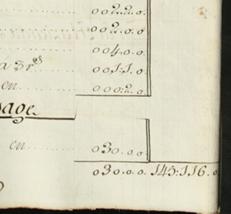 002.2.0
002.0.0
004.0.0
a 3 rs 001.1.0
on 000.2.0
sage
on 030.0.0
030.0.0. 145.116.0